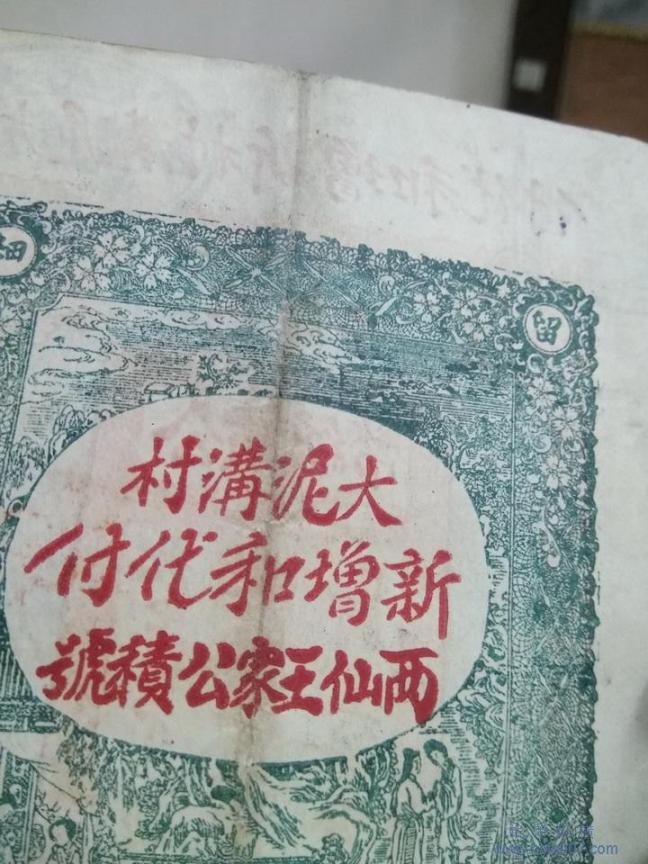 細
留
大泥溝村
新增和代付
西仙王家公積號